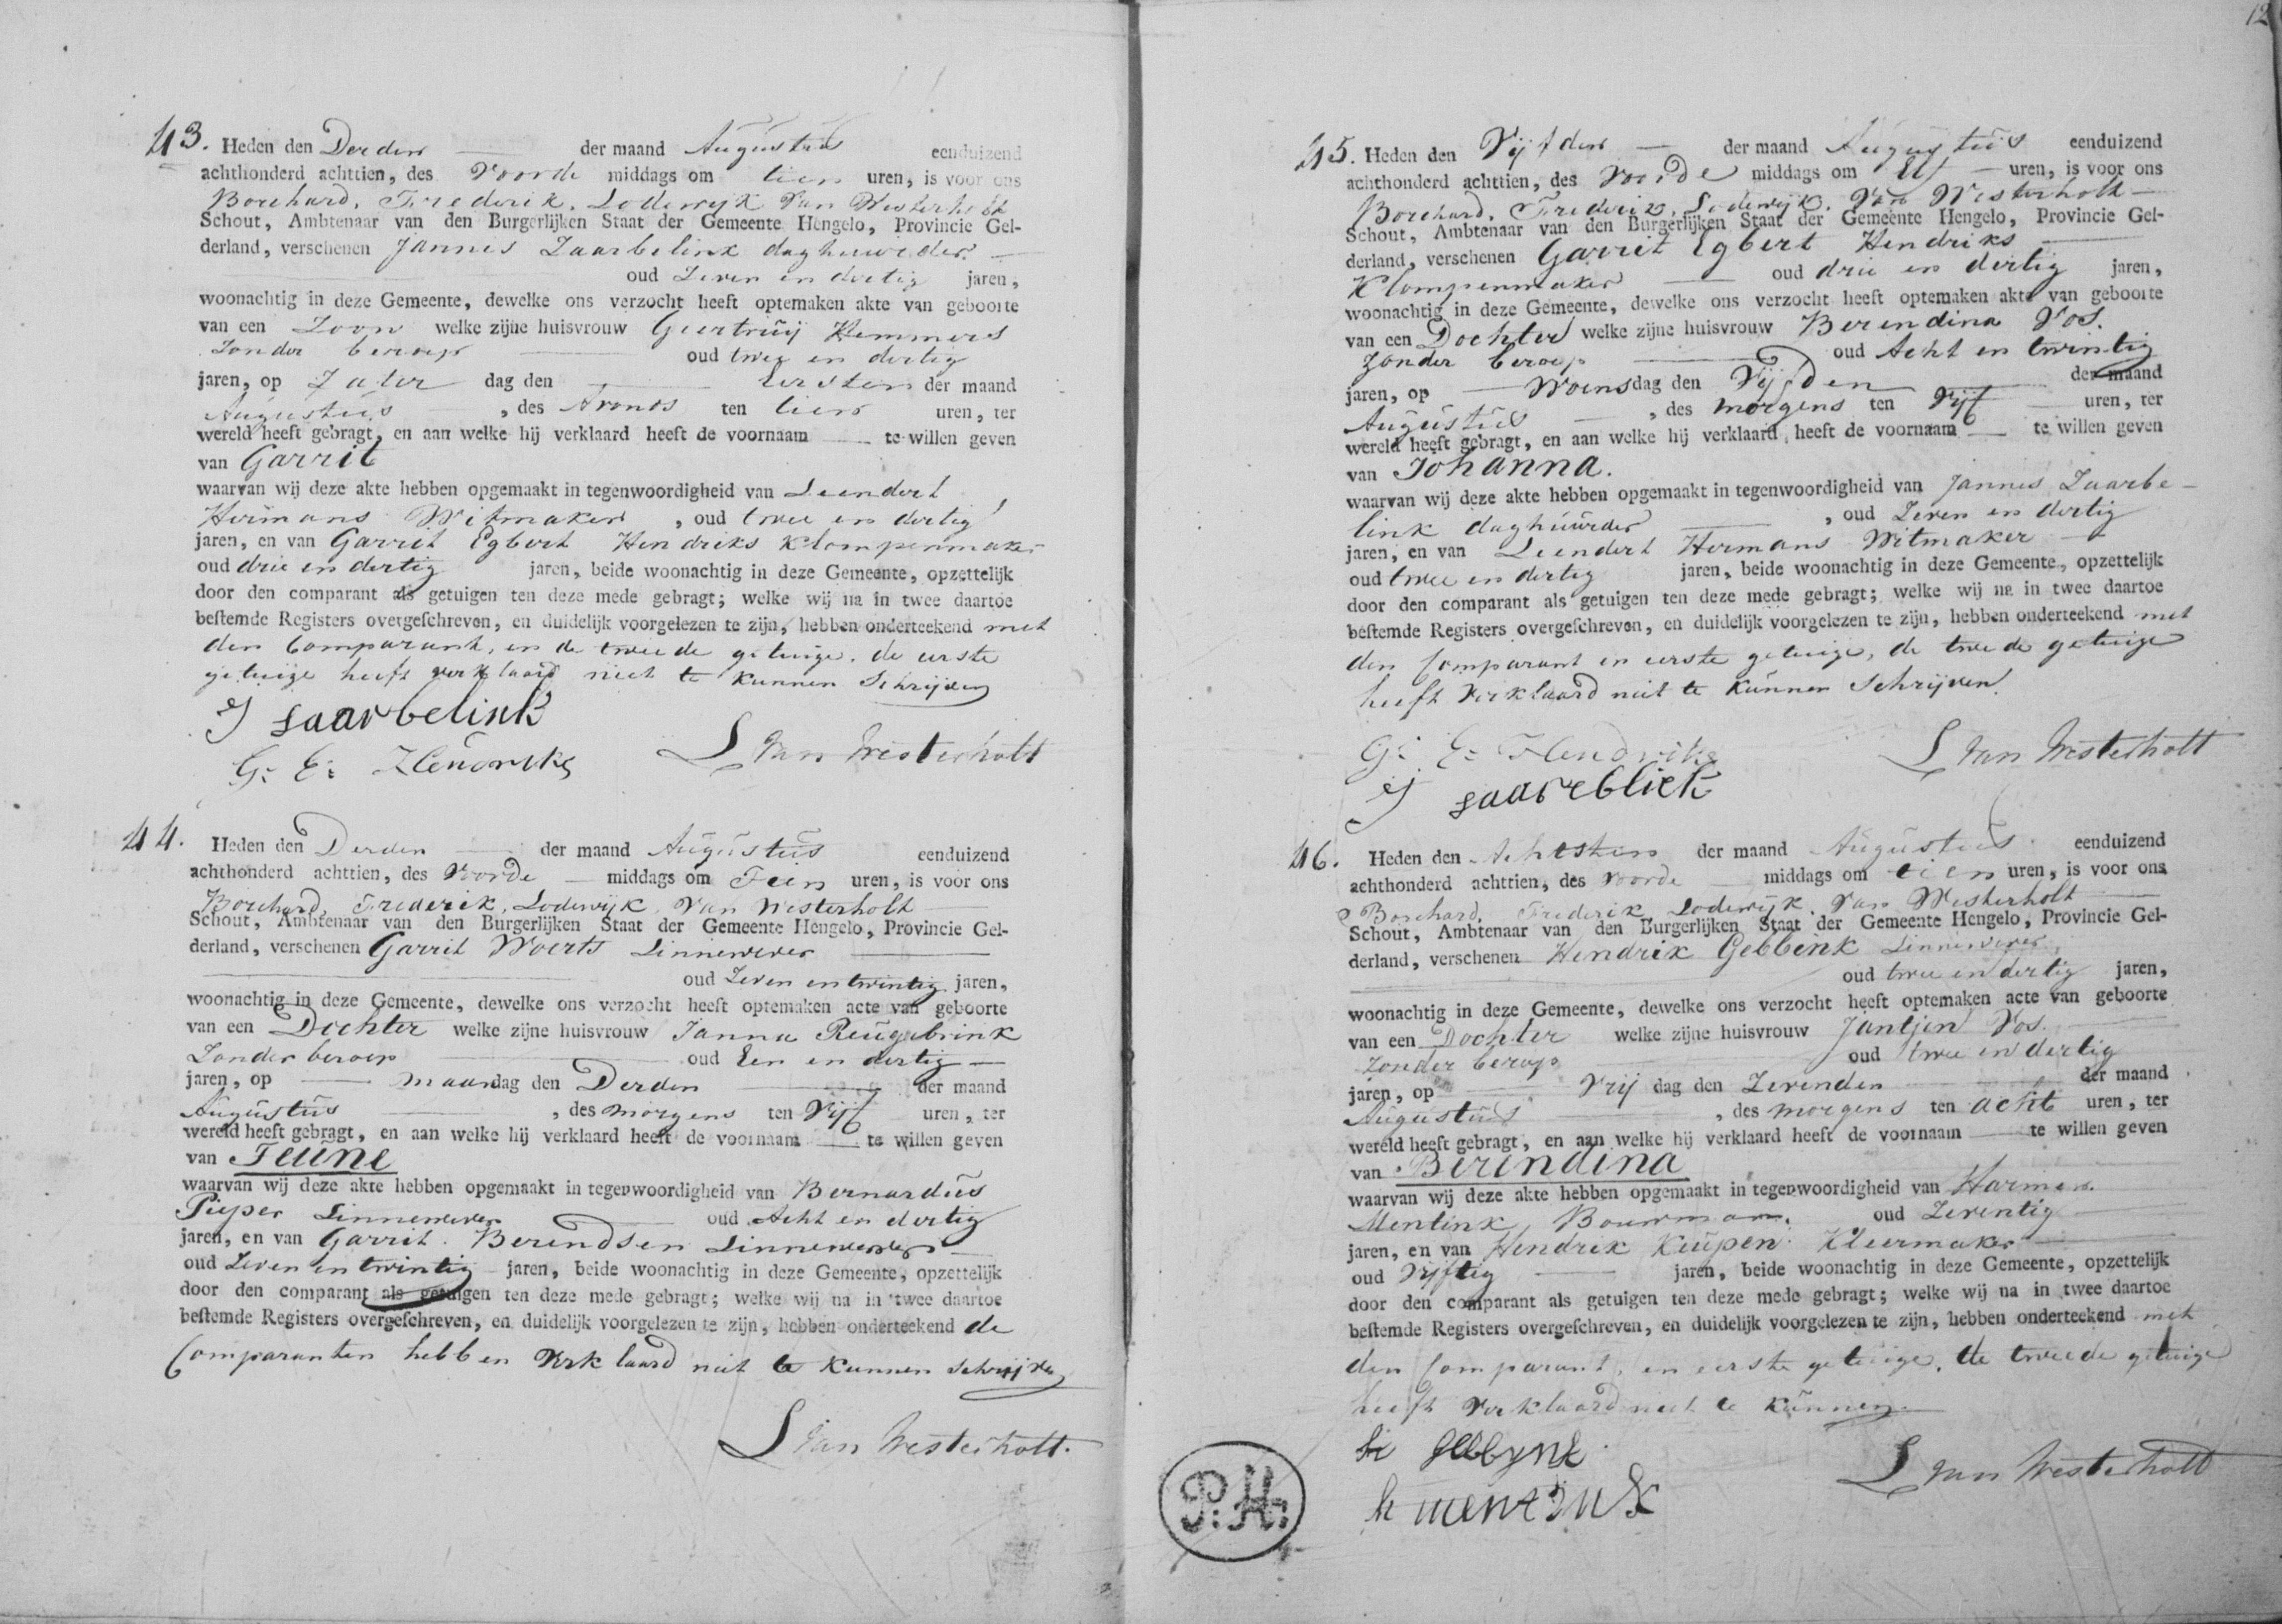 12
43. Heden den Derden der maand Augustus eenduizend
achthonderd achttien, des Voorde middags om tien uren, is voor ons
Borchard, Frederik, Lodewyk Van Westerholt
Schout, Ambtenaar van den Burgerlijken Staat der Gemeente Hengelo, Provincie Gel-
derland, verschenen Jannes Zaarbelink daghuurder
oud Zeven en dertig jaren,
woonachtig in deze Gemeente, dewelke ons verzocht heeft optemaken akte van geboorte
van een Zoon welke zijne huisvrouw Geertruij Hemmers
Zonder beroep oud twee en dertig
jaren, op Zater dag den Eersten der maand
Augustus , des Avonds ten tien uren, ter
wereld heeft gebragt, en aan welke hij verklaard heeft de voornaam te willen geven
van Garrit
waarvan wij deze akte hebben opgemaakt in tegenwoordigheid van Leendert
Hermans Witmaker , oud twee en dertig
jaren, en van Garret Egbert Hendriks Klompenmaker
oud drie en dertig jaren, beide woonachtig in deze Gemeente, opzettelijk
door den comparant als getuigen ten deze mede gebragt; welke wij na in twee daartoe
bestemde Registers overgeschreven, en duidelijk voorgelezen te zijn, hebben onderteekend met
den Comparant, en de tweede getuige. de eerste
getuige heeft verklaard niet te kunnen Schrijven
J saarbelink
G: E: Hendriks L Van Westerholt
44. Heden den Derden der maand Augustus eenduizend
achthonderd achttien, des Voorde middags om Tien uren, is voor ons
Borchard, Frederik, Lodewijk Van Westerholt
Schout, Ambtenaar van den Burgerlijken Staat der Gemeente Hengelo, Provincie Gel-
derland, verschenen Garrit Woerts Linnenwever
oud Zeven en twintig jaren,
woonachtig in deze Gemeente, dewelke ons verzocht heeft optemaken acte van geboorte
van een Dochter welke zijne huisvrouw Janna Reugebrink
Zonder beroep oud Een en dertig
jaren, op maandag den Derden der maand
Augustus , des morgens ten Vijf uren, ter
wereld heeft gebragt, en aan welke hij verklaard heeft de voornaam te willen geven
van Teune
waarvan wij deze akte hebben opgemaakt in tegenwoordigheid van Bernardus
Pieper Linnenwever oud Acht en dertig
jaren, en van Garrit Berendsen Linnenwever
oud Zeven en twintig jaren, beide woonachtig in deze Gemeente, opzettelijk
door den comparant als getuigen ten deze mede gebragt; welke wij na in twee daartoe
bestemde Registers overgeschreven, en duidelijk voorgelezen te zijn, hebben onderteekend de
Comparanten hebben verklaard niet te kunnen schrijven
L Van Westerholt.
45. Heden den Vijfden der maand Augustus eenduizend
achthonderd achttien, des Voorde middags om Elf uren, is voor ons
Borchard, Frederik, Lodewijk, Van Westerholt
Schout, Ambtenaar van den Burgerlijken Staat der Gemeente Hengelo, Provincie Gel-
derland, verschenen Garrit Egbert Hendriks
Klompenmaker oud drie en dertig jaren,
woonachtig in deze Gemeente, dewelke ons verzocht heeft optemaken akte van geboorte
van een Dochter welke zijne huisvrouw Berendina Vos.
Zonder beroep oud Acht en twintig
jaren, op Woensdag den Vijfden der maand
Augustus , des morgens ten Vijf uren, ter
wereld heeft gebragt, en aan welke hij verklaard heeft de voornaam te willen geven
van Johanna.
waarvan wij deze akte hebben opgemaakt in tegenwoordigheid van Jannes Zaarbe-
link daghuurder , oud Zeven en dertig
jaren, en van Leendert Hermans Witmaker
oud twee en dertig jaren, beide woonachtig in deze Gemeente, opzettelijk
door den comparant als getuigen ten deze mede gebragt; welke wij na in twee daartoe
bestemde Registers overgeschreven, en duidelijk voorgelezen te zijn, hebben onderteekend met
den Comparant en eerste getuige, de tweede getuige
heeft verklaard niet te kunnen Schrijven.
G: E: Hendriks L Van Westerholt
J saareblick
46. Heden den Achtsten der maand Augustus eenduizend
achthonderd achttien, des voorde middags om tien uren, is voor ons
Borchard, Frederik Lodewijk Van Westerholt
Schout, Ambtenaar van den Burgerlijken Staat der Gemeente Hengelo, Provincie Gel-
derland, verschenen Hendrik Gebbink Linnenwever
oud twee en dertig jaren,
woonachtig in deze Gemeente, dewelke ons verzocht heeft optemaken acte van geboorte
van een Dochter welke zijne huisvrouw Jantjen Vos.
Zonder beroep oud twee en dertig
jaren, op Vrij dag den Zevenden der maand
Augustus , des morgens ten acht uren, ter
wereld heeft gebragt, en aan welke hij verklaard heeft de voornaam te willen geven
van Berendina
waarvan wij deze akte hebben opgemaakt in tegenwoordigheid van Harmen
Mentink Bouwman. oud Zeventig
jaren, en van Hendrik Keupen Kleermaker
oud Vijftig jaren, beide woonachtig in deze Gemeente, opzettelijk
door den comparant als getuigen ten deze mede gebragt; welke wij na in twee daartoe
bestemde Registers overgeschreven, en duidelijk voorgelezen te zijn, hebben onderteekend met
den Comparant, en eerste getuige. de tweede getuige
heeft verklaard niet te kunnen
H gebbynk L Van Westerholt
H mentink
P.H.